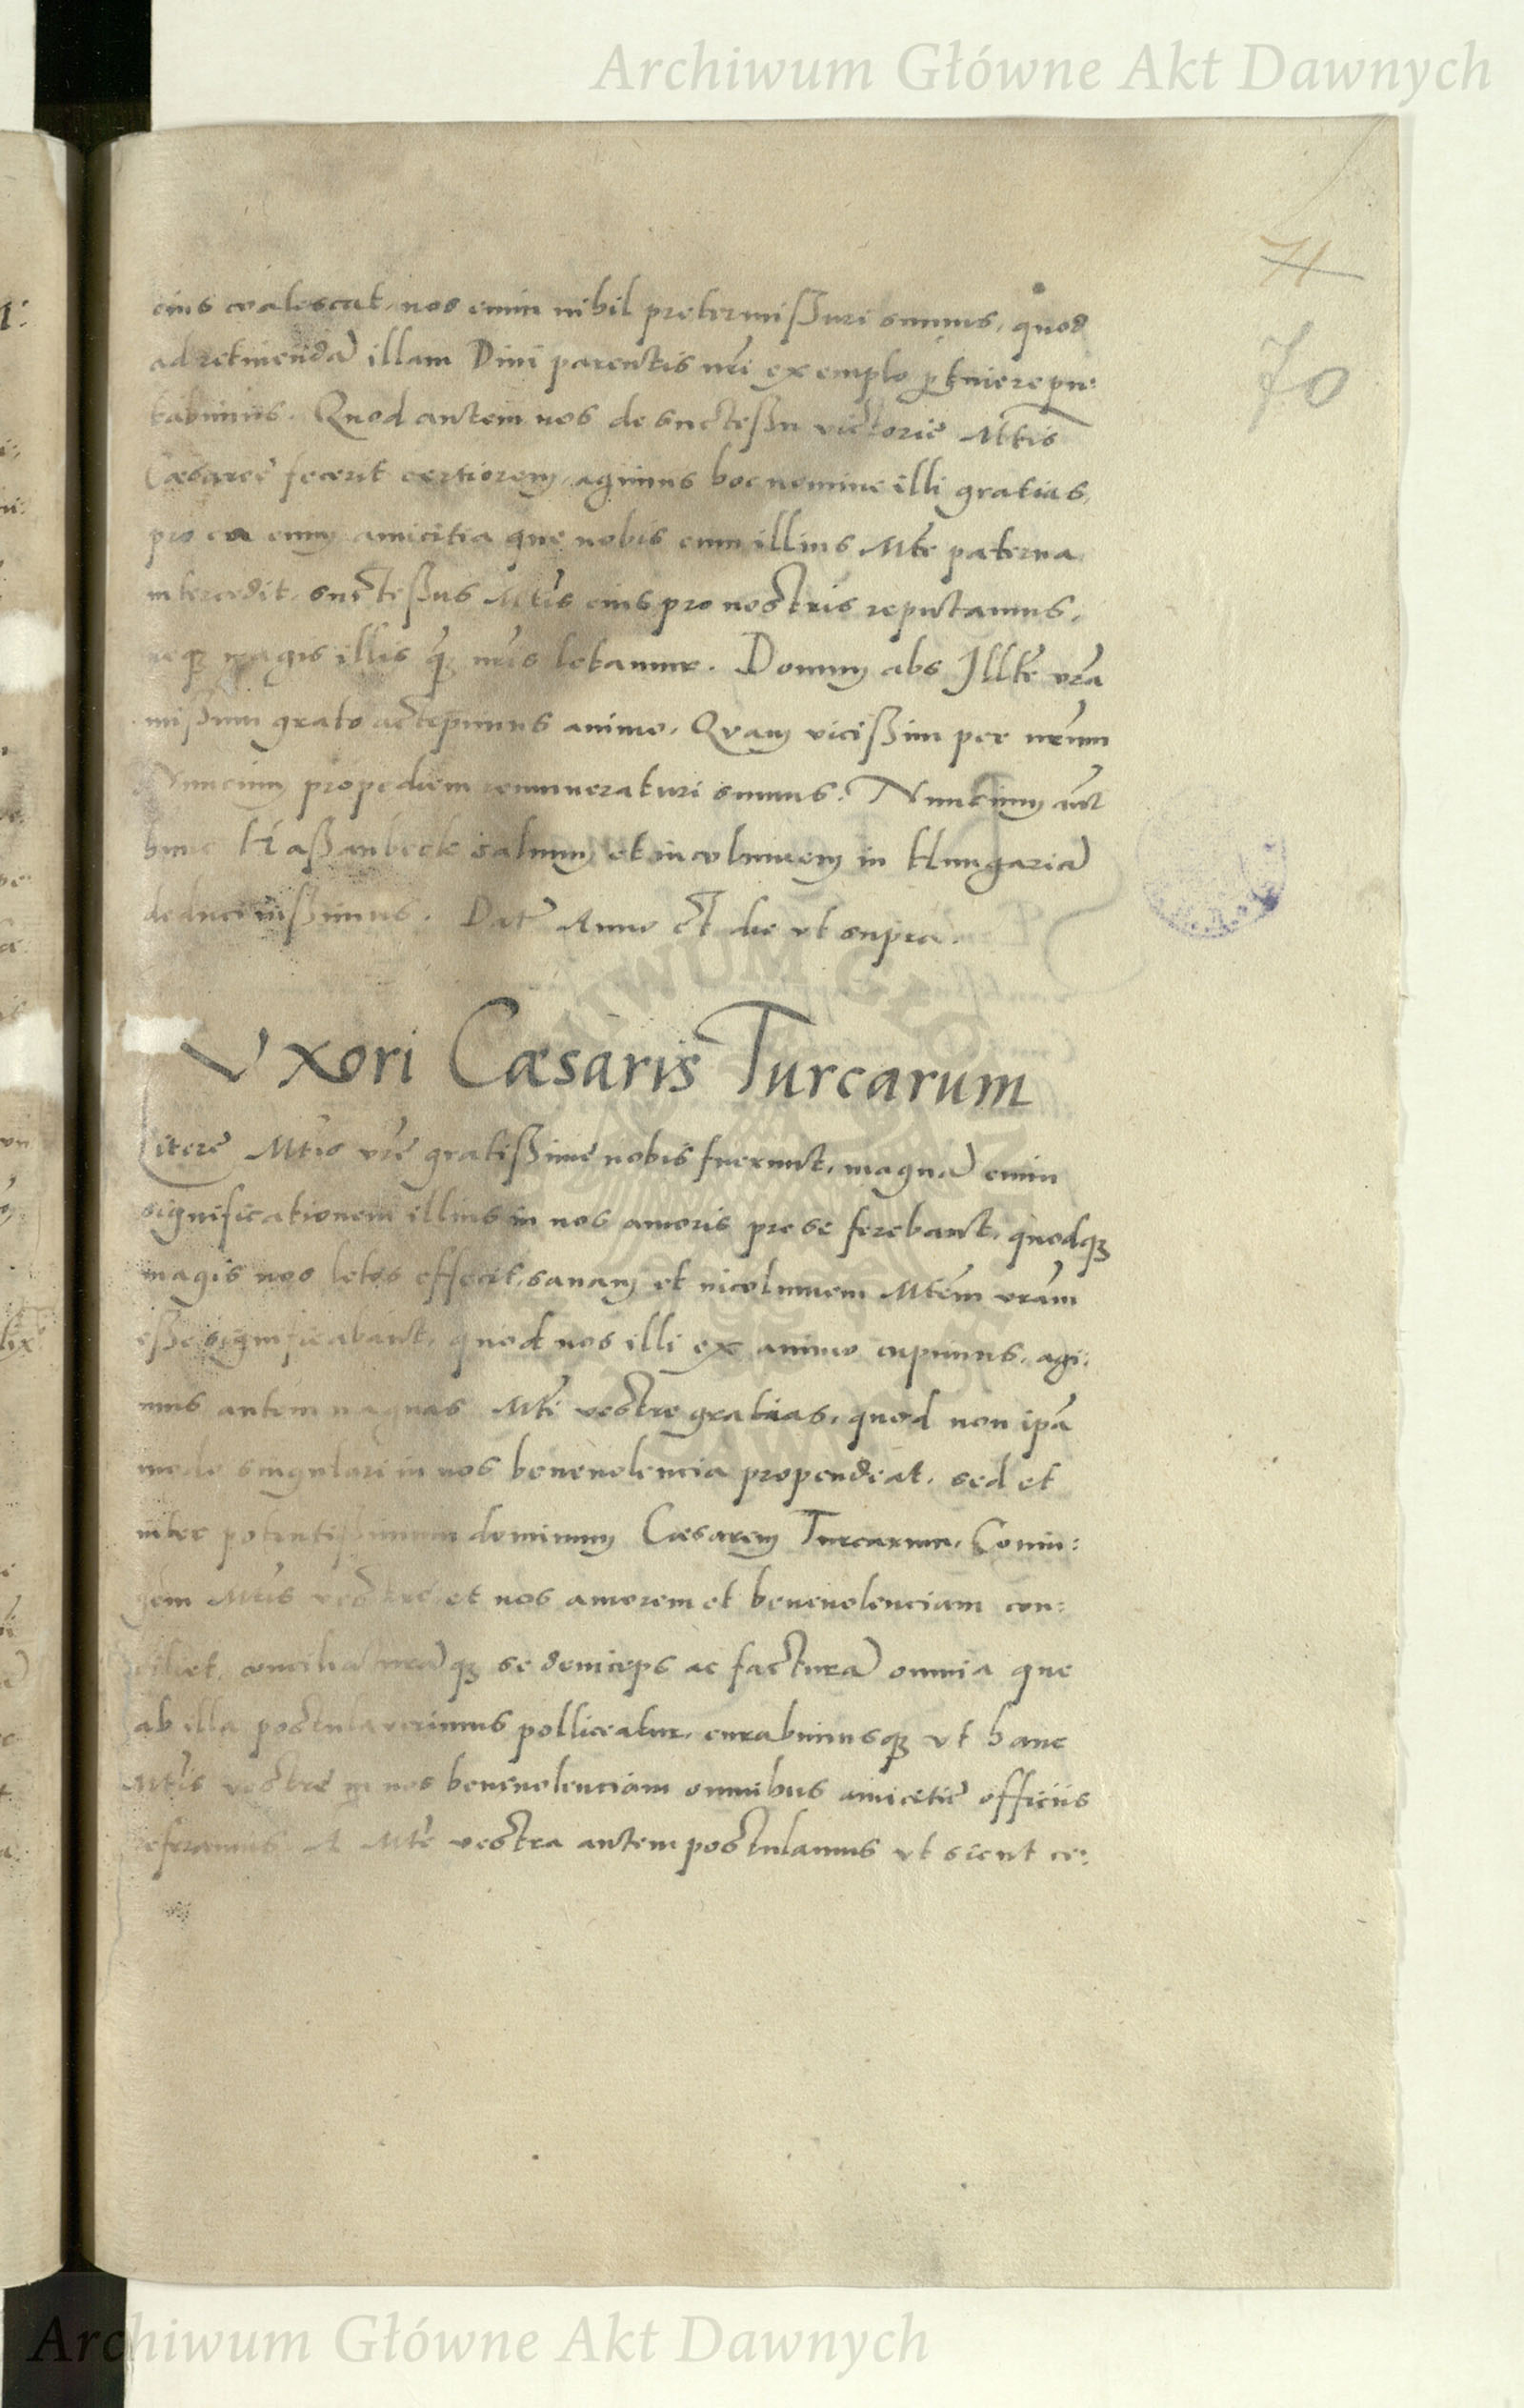 Archiwum Główne Akt Dawnych
71
70
eius coalescat, nos enim nihil pretermissuri sumus, quod
ad retinendā illam Divi parentis nri exemplo ptinere pu:
tabimus. Quod autem nos de successu victorie Mtis
Cæsaree fecerit certiorem, agimus hoc nomine illi gratias,
pro ea enim amicitia que nobis cum illius Mte paterna
intercedit, successus Mtis eius pro nostris reputamus,
neq magis illis q nris letamur. Donum abs Illte vra
missum grato accepimus animo. Quam vicissim per nrum
Nuncium propediem remuneraturi sumus. Nuncium aut
hunc Hassanbeck salvum et incolumem in Hungariā
deduci iussimus. Dat Anno et die ut supra
Uxori Cæsaris Turcarum
Litere Mtis vre gratissime nobis fuerunt, magnā enim
significationem illius in nos amoris pre se ferebant, quodq
magis nos letos effecit, sanam et incolumem Mtem vram
esse significabant, quod nos illi ex animo cupimus, agi:
mus autem magnas Mti vestre gratias, quod non ipa
modo singulari in nos benevolencia propendeat, sed et
inter potentissimum dominum Cæsarem Turcarum, Coniu:
gem Mtis vestre et nos amorem et benevolenciam con:
ciliet, conciliaturāq se deinceps ac facturā omnia que
ab illa postulaverimus polliceatur, curabimusq ut hanc
Mtis vestre in nos benevolenciam omnibus amicitie officiis
referamus A Mte vestra autem postulamus ut sicut ce:
Archiwum Główne Akt Dawnych